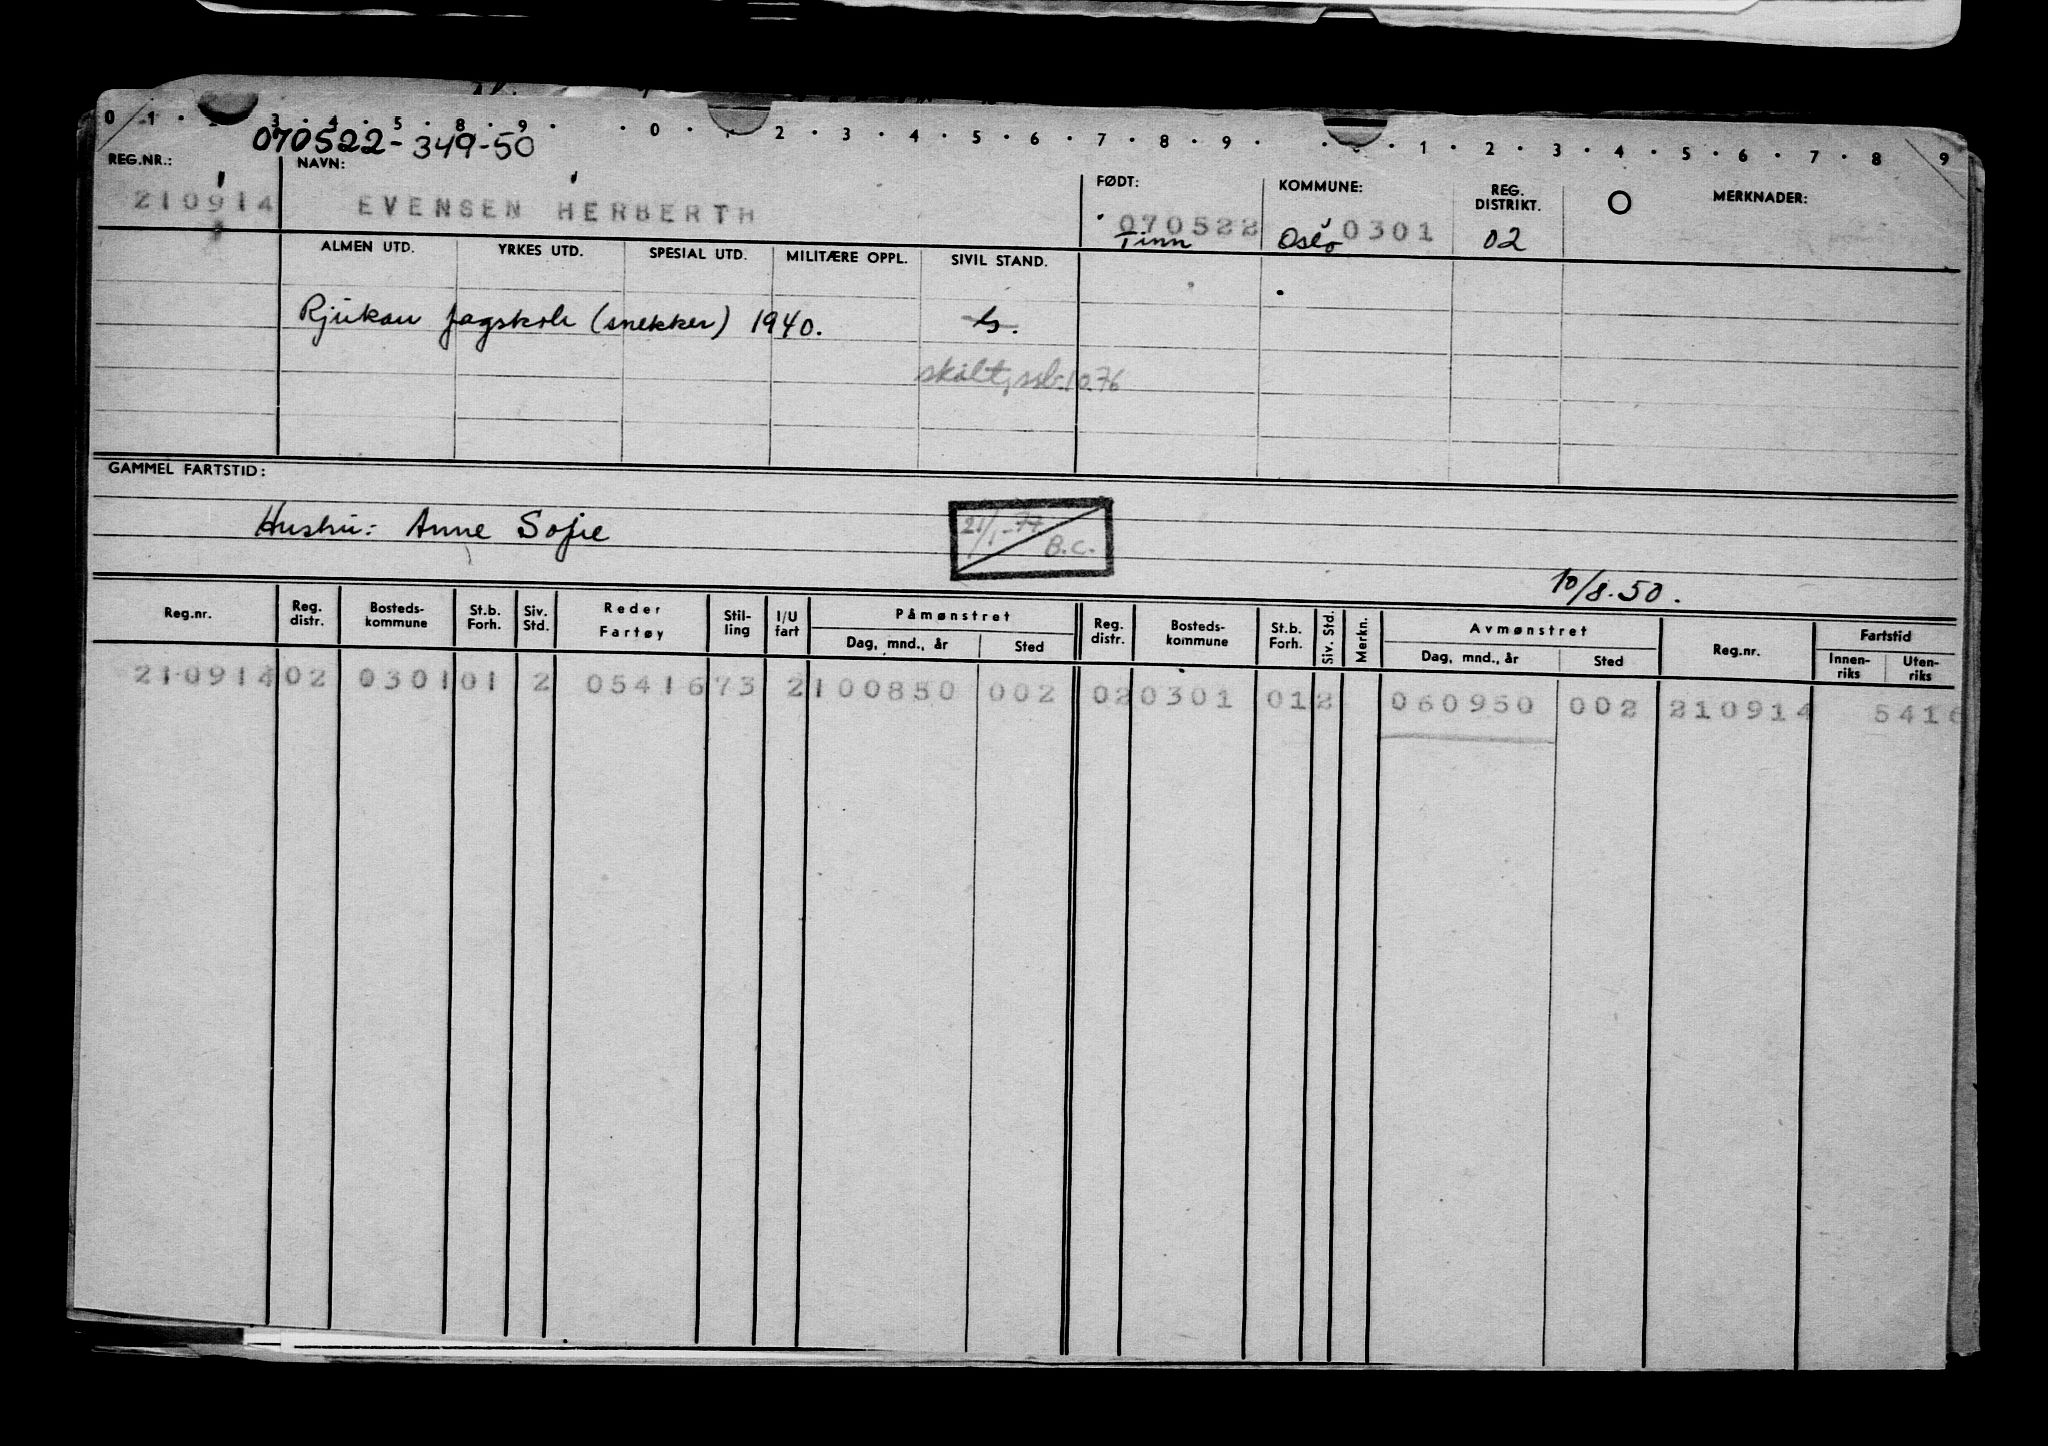 0 1 · 3 · 4 · 5 · 8 · 9 · · 0 · 2 · 3 · 4 · 5 · 6 · 7 · 8 · 9 · · 1 · 2 · 3 · 4 · 5 · 6 · 7 · 8 9
070522-349-50
REG.NR.: NAVN: FØDT: KOMMUNE: REG. DISTRIKT. O MERKNADER:
210914 EVENSEN HERBERTH 070522 Oslo 0301 02
Tinn
ALMEN UTD. YRKES UTD. SPESIAL UTD. MILITÆRE OPPL. SIVIL STAND.
Rjukan fagskole (snekker) 1940. G.
skilt, 10.76
GAMMEL FARTSTID:
Hustru: Anne Sofie
21/1-77
B.C.
10/8.50.
Reg.nr. Reg. distr. Bosteds-kommune St.b. Forh. Siv. Std. Reder Fartøy Stil-ling I/U fart Påmønstret Reg. distr. Bosteds-kommune St.b. Forh. Siv. Std. Merkn. Avmønstret Reg.nr. Fartstid
Dag, mnd., år Sted Dag, mnd., år Sted Innen-riks Uten-riks
210914 02 0301 01 2 05416 73 2 100850 002 02 0301 01 2 060950 002 210914 5416